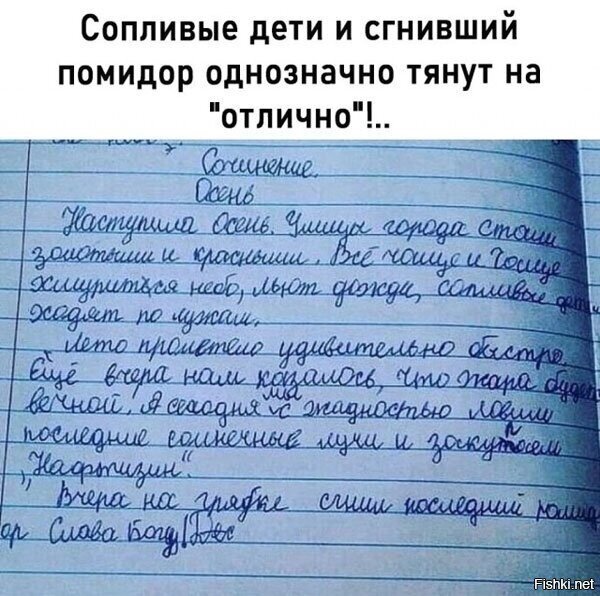 Сопливые дети и сгнивший
помидор однозначно тянут на
"отлично"!..
Сочинение.
Осень
Наступила Осень. Улицы города стали
золотыми и красными. Всё чаще и чаще
хмуриться небо, льют дожди, сопливые дети
ходят по лужам.
Лето пролетело удивительно быстро.
Ещё вчера нам казалось, что жара будет
вечной. А сегодня мы с жадностью ловим
последние солнечные лучи и закупаем
„Нафтизин".
Вчера на грядке сгнил последний помид
ор Слава Богу
Fishki.net